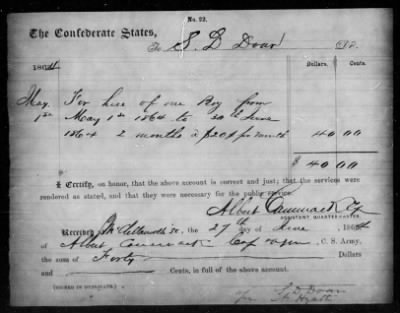 No. 22.
The Confederate States,
To S. D. Doar Dr.
1864 Dollars. Cents.
May For hire of one Boy from
1st May 1st 1864 to 30th June
1864 2 months @ $20 per month 40 00
$ 40 00
I Certify, on honor, that the above account is correct and just; that the services were
rendered as stated, and that they were necessary for the public service.
Albert
ASSISTANT QUARTERMASTER.
Received the 27th of June 1864
of Albert Capt C. S. Army,
the sum of Forty Dollars
Cents, in full of the above account.
(SIGNED IN DUPLICATE.) S D Doar